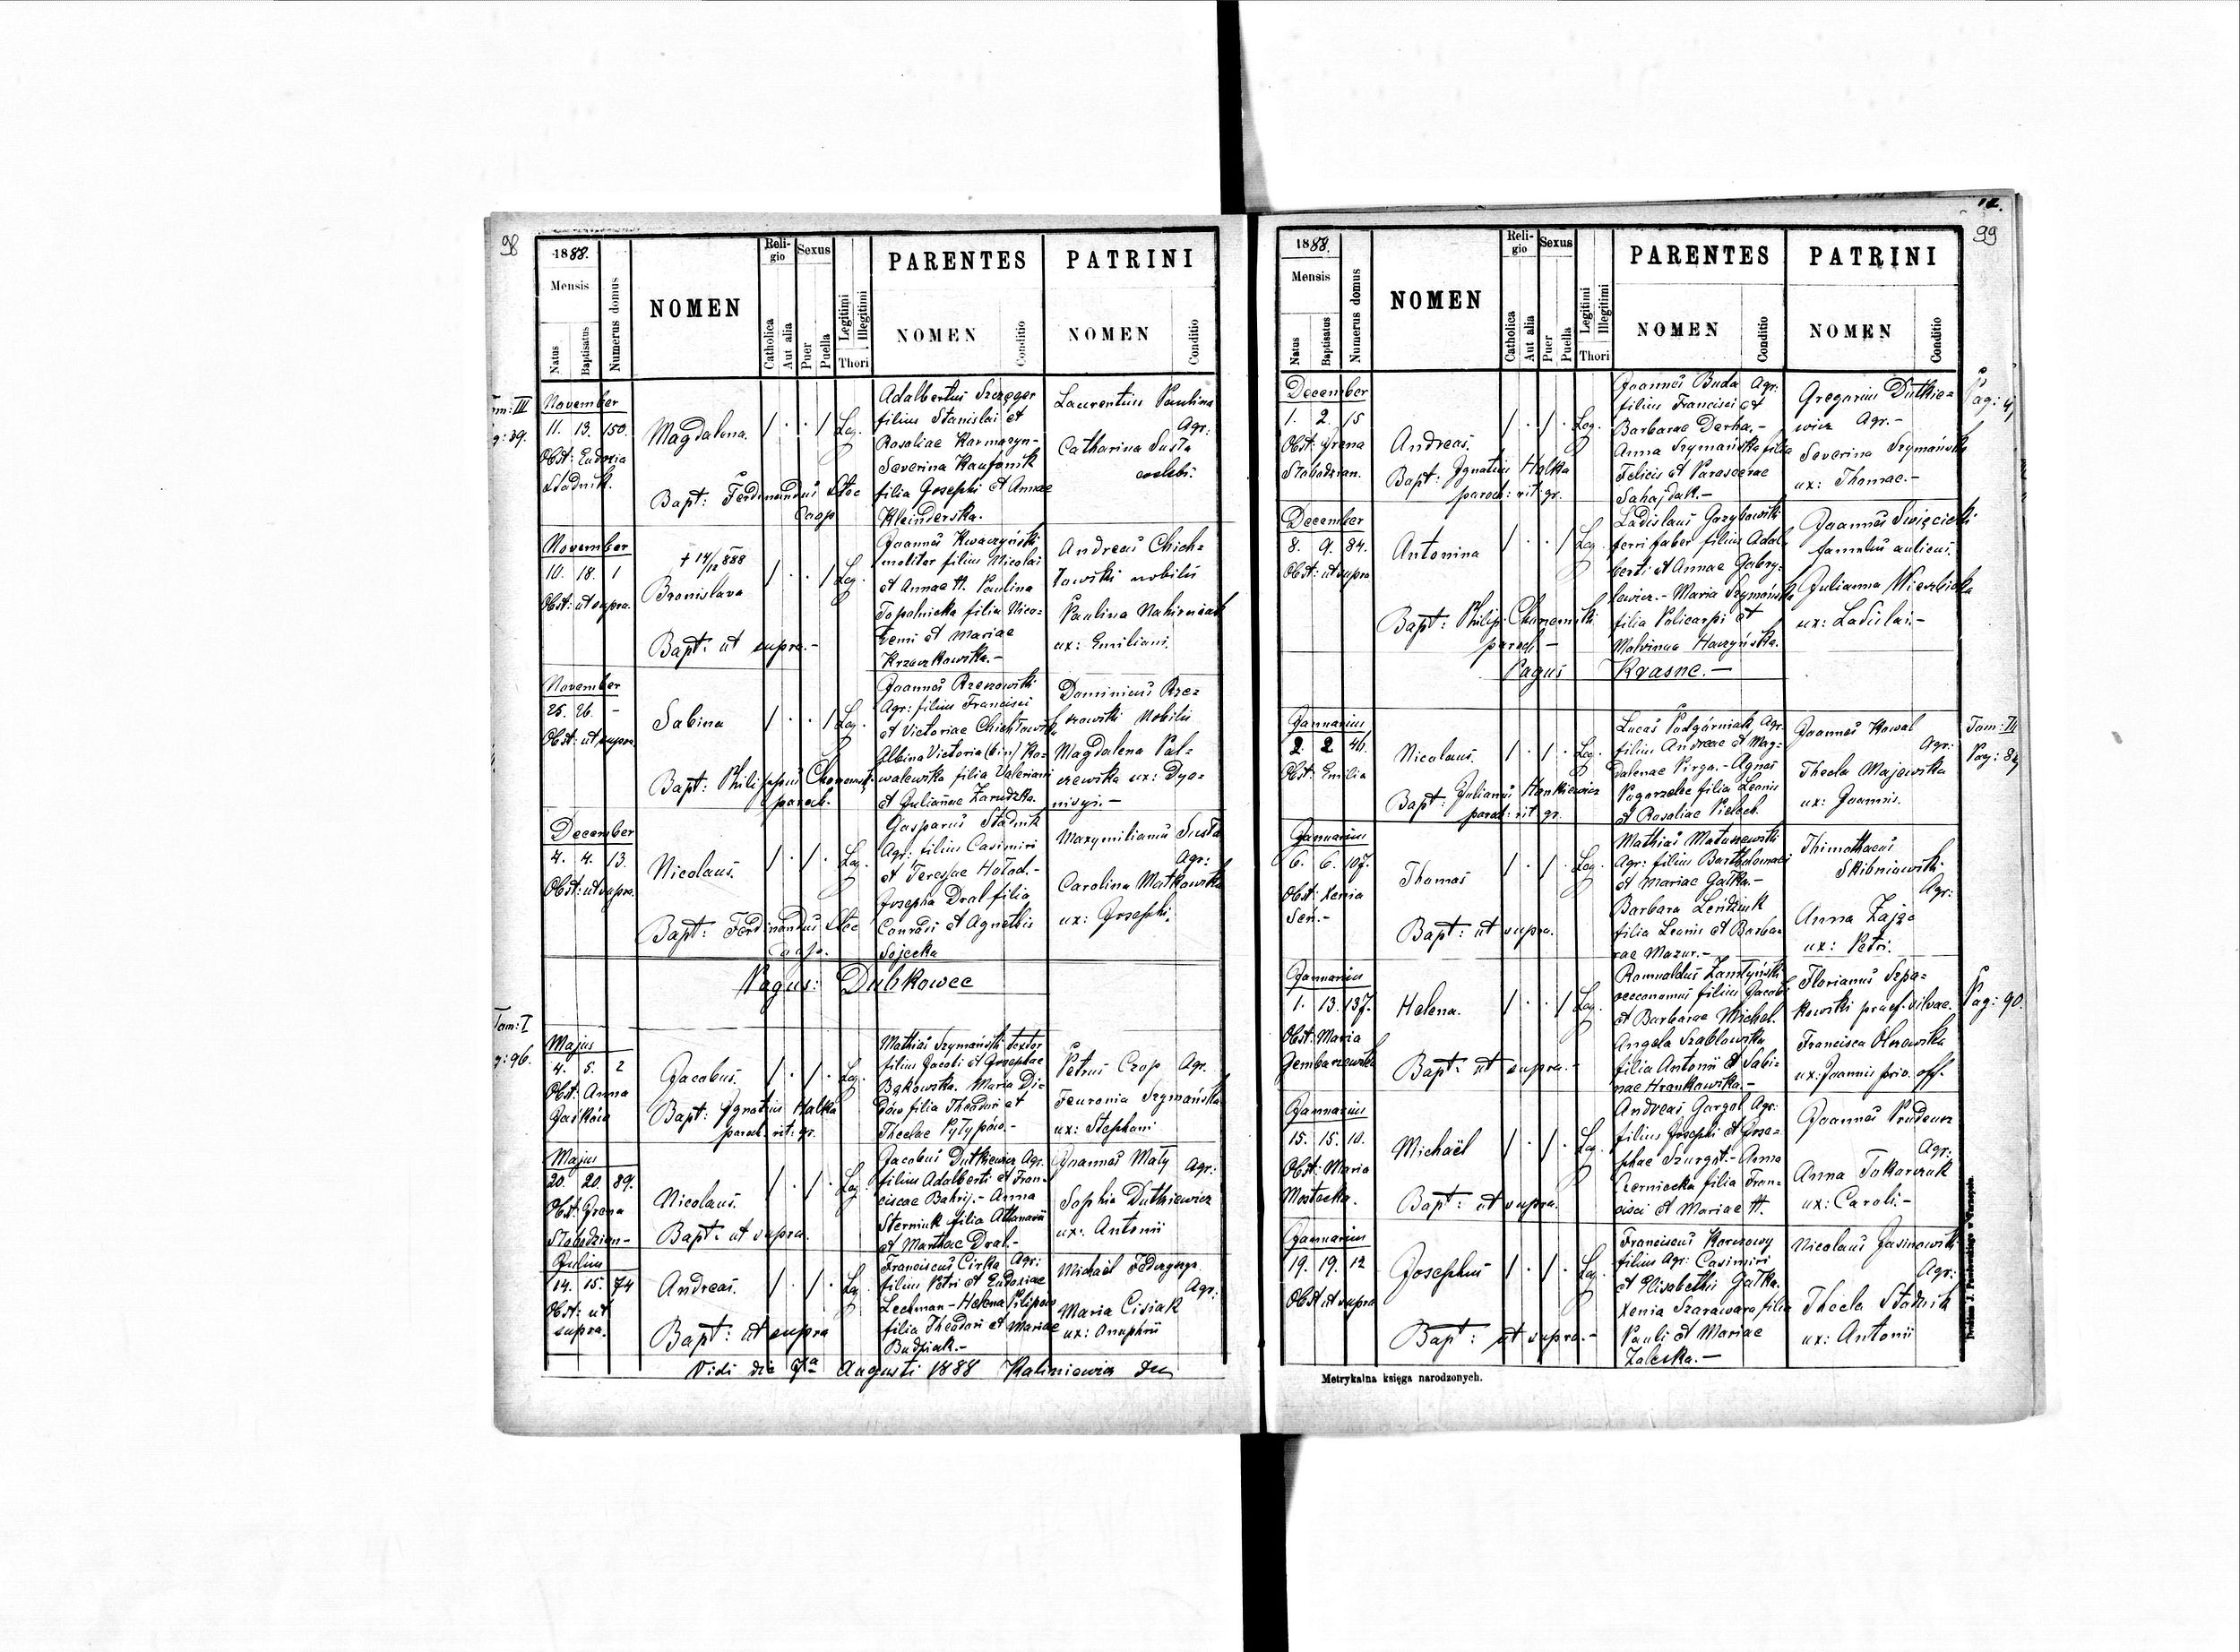 98
1888.
Mensis
Natus
Baptisatus
Numerus domus
NOMEN
Reli-
gio
Catholica
Aut alia
Sexus
Puer
Puella
Legitimi
Illegitimi
Thori
PARENTES
NOMEN
Conditio
PATRINI
NOMEN
Conditio
m: III
g: 39.
November
11. 13. 150.
Obst: Eudoxia
Stadnik.
Magdalena.
Bapt: Ferdinandus Stec
Coop
/ . . / Leg.
Adalbertus Szczęger
filius Stanislai et
Rosaliae Karmazyn-
Severina Kaufanik
filia Josephi et Annae
Kleinderska.
Laurentius Paulina
Agr:
Catharina Susta
coelebs.
November
10. 18. 1
Obst: ut supra.
+ 14/12 888
Bronislava
Bapt: ut supra.-
/ . . / Leg.
Joannes Kwaczyński
molitor filius Nicolai
et Annae H. Paulina
Topolnicka filia Nico-
demi et Mariae
Krzaczkowska.-
Andreas Chich-
łowski nobilis
Paulina Nahirniak
ux: Emiliani.
November
25. 26. -
Obst: ut supra
Sabina
Bapt: Philippus Choromski
paroch.
/ . . / Leg.
Joannes Rzeszowski
Agr: filius Francisci
et Victoriae Chichłowska
Albina Victoria (bin) Ko-
walewska filia Valeriani
et Juliannae Zarudzka.
Dominicus Rze-
szowski Nobilis
Magdalena Pal-
czewska ux: Dyo-
nisyi.-
December
4. 4. 13.
Obst: ut supra.
Nicolaus.
Bapt: Ferdinandus Stec
Coop.
/ . / . Leg.
Gasparus Stadnik
Agr: filius Casimiri
et Teresiae Hołod.-
Josepha Dral filia
Conradi et Agnethis
Sojecka
Maxymilianus Susta
Agr:
Carolina Matkowska
ux: Josephi.
Pagus: Dubkowce
Tom: I
g: 96.
Majus
4. 5. 2
Obst: Anna
Jaskóła
Jacobus.
Bapt: Ignatius Halka
paroch. rit: gr.
/ . / . Leg.
Mathias Szymański textor
filius Jacobi et Josephae
Bąkowska. Maria Di-
dów filia Theodori et
Theclae Pyłypów.-
Petrus Czop Agr.
Feuronia Szymańska
ux: Stephani
Majus
20. 20. 89.
Obst: Irena
Słobodzian-
Nicolaus.
Bapt: ut supra.
/ . / . Leg.
Jacobus Dutkiewicz Agr.
filius Adalberti et Fran-
ciscae Bahrij.- Anna
Sterniuk filia Athanasii
et Marthae Dral.-
Joannes Mały Agr:
Sophia Dutkiewicz
ux: Antonii
Julius
14. 15. 74
Obst: ut
supra.
Andreas.
Bapt: ut supra
/ . / . Leg.
Franciscus Cirka Agr:
filius Petri et Eudoxiae
Lechman - Helena Pilipów
filia Theodori et Mariae
Budziak.-
Michael Fedczyszyn
Agr:
Maria Cisiak
ux: Onuphrii
Vidi die 9a Augusti 1888 Kaliniewicz
99
1888.
Mensis
Natus
Baptisatus
Numerus domus
NOMEN
Reli-
gio
Catholica
Aut alia
Sexus
Puer
Puella
Legitimi
Illegitimi
Thori
PARENTES
NOMEN
Conditio
PATRINI
NOMEN
Conditio
Pag: 4
December
1. 2. 15
Obst: Irena
Słobodzian.
Andreas.
Bapt: Ignatius Halka
paroch: rit: gr.
/ . / . Leg.
Joannes Buda Agr:
filius Francisci et
Barbarae Derha.-
Anna Szymańska filia
Felicis et Parascevae
Sahajdak.-
Gregorius Dutkie-
wicz Agr.-
Severina Szymańska
ux: Thomae.-
December
8. 9. 84.
Obst: ut supra
Antonina
Bapt: Philip: Choromski
paroch -
/ . . / Leg.
Ladislaus Grzybowski
ferri faber filius Adal-
berti et Annae Gabry-
lewicz.- Maria Szymańska
filia Policarpi et
Malvinae Haczyńska.
Joannes Święcicki
famulus aulicus.
Julianna Wierzbicka
ux: Ladislai.-
Pagus Krasne.-
Tom: III
Pag: 89
Januarius
2. 2 46.
Obst: Emilia
Nicolaus.
Bapt: Julianus Hankiewicz
paroch: rit gr.
/ . / . Leg.
Lucas Podgórniak Agr.
filius Andreae et Mag-
dalenae Pirga.- Agnes
Pogorzelec filia Leonis
et Rosaliae Pielech.
Joannes Kowal
Agr:
Thecla Majewska
ux: Joannis.
Januarius
6. 6. 107.
Obst: Xenia
Seń.-
Thomas
Bapt: ut supra.
/ . / . Leg.
Mathias Matuszewski
Agr: filius Bartholomaei
et Mariae Gałka.-
Barbara Leńdziuk
filia Leonis et Barba-
rae Mazur.-
Thimotheus
Skibniewski
Agr:
Anna Zając
ux: Petri.
Pag: 90.
Januarius
1. 13. 137.
Obst: Maria
Gembarzewska
Helena.
Bapt: ut supra.-
/ . . / Leg.
Romualdus Zamłyński
oeconomus filius Jacobi
et Barbarae Michel.
Angela Szablowska
filia Antonii et Sabi-
nae Hrankowska.-
Florianus Szpa-
kowski praef. silvae.
Francisca Olszewska
ux: Joannis priv. off.
Januarius
15. 15. 10.
Obst: Maria
Mostecka.
Michaël
Bapt: ut supra.
/ . / . Leg.
Andreas Gargol Agr:
filius Josephi et Jose-
phae Szurgot.- Anna
Czerniecka filia Fran-
cisci et Mariae H.
Joannes Prudeusz
Agr:
Anna Tokarczuk
ux: Caroli.-
Januarius
19. 19. 12
Obst: ut supra
Josephus
Bapt: ut supra.-
/ . / . Leg.
Franciscus Korczowy
filius Agr: Casimiri
et Elisabethis Gałka.
Xenia Szarawara filia
Pauli et Mariae
Zaleska.-
Nicolaus Jasinowski
Agr:
Thecla Stadnik
ux: Antonii
Metrykalna księga narodzonych.